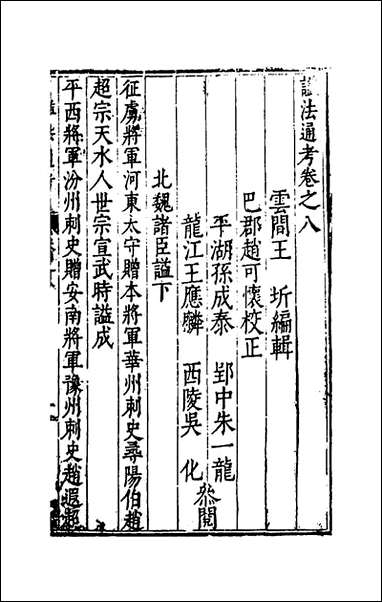 謚法通考卷之八
雲間王　圻編輯
巴郡趙可懷校正
平湖孫成泰　郢中朱一龍
龍江王應麟　西陵吳　化　叅閱
北魏諸臣謚下
征虜將軍河東太守贈本將軍華州刺史尋陽伯趙
超宗天水人世宗宣武時謚成
平西將軍汾州刺史贈安南將軍豫州刺史趙遐超